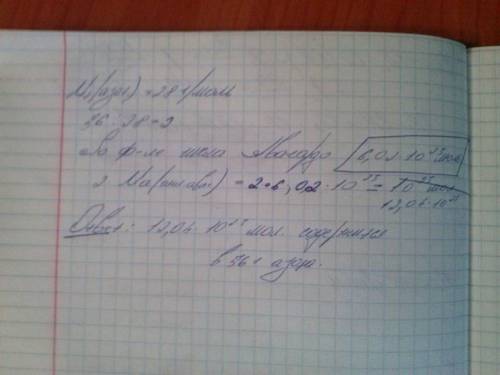 M(азот) = 28 г/моль
56 : 28 = 2
По ф-ле числа Авогадро 6,02 · 10²³ мол
2 = 2 · 6,02 · 10²³ =
12,04 · 10²³
Ответ: 12,04 · 10²³ мол. содержится
в 56 г азота.